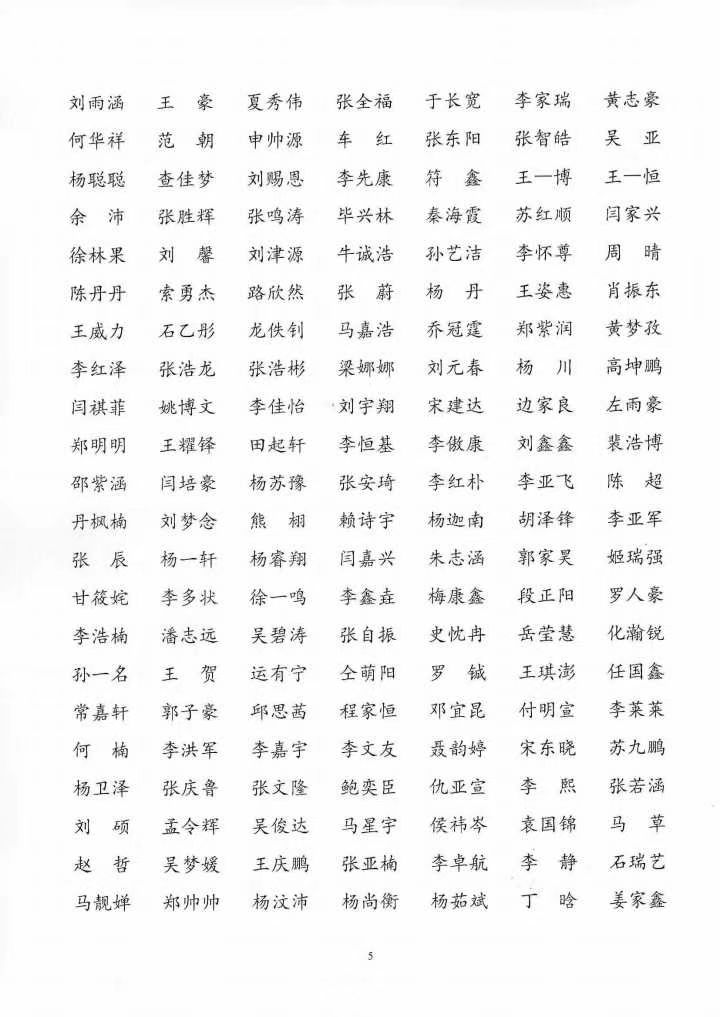 刘雨涵 王 豪 夏秀伟 张全福 于长宽 李家瑞 黄志豪
何华祥 范 朝 申帅源 车 红 张东阳 张智皓 吴 亚
杨聪聪 查佳梦 刘赐恩 李先康 符 鑫 王一博 王一恒
余 沛 张胜辉 张鸣涛 毕兴林 秦海霞 苏红顺 闫家兴
徐林果 刘 馨 刘津源 牛诚浩 孙艺洁 李怀尊 周 晴
陈丹丹 索勇杰 路欣然 张 蔚 杨 丹 王姿惠 肖振东
王威力 石乙彤 龙佚钊 马嘉浩 乔冠霆 郑紫润 黄梦孜
李红泽 张浩龙 张浩彬 梁娜娜 刘元春 杨 川 高坤鹏
闫祺菲 姚博文 李佳怡 刘宇翔 宋建达 边家良 左雨豪
郑明明 王耀铎 田起轩 李恒基 李傲康 刘鑫鑫 裴浩博
邵紫涵 闫培豪 杨苏豫 张安琦 李红朴 李亚飞 陈 超
丹枫楠 刘梦念 熊 栩 赖诗宇 杨迦南 胡泽锋 李亚军
张 辰 杨一轩 杨睿翔 闫嘉兴 朱志涵 郭家昊 姬瑞强
甘筱姹 李多状 徐一鸣 李鑫垚 梅康鑫 段正阳 罗人豪
李浩楠 潘志远 吴碧涛 张自振 史忱冉 岳莹慧 化瀚锐
孙一名 王 贺 运有宁 仝萌阳 罗 铖 王琪澎 任国鑫
常嘉轩 郭子豪 邱思茜 程家恒 邓宜昆 付明宣 李莱莱
何 楠 李洪军 李嘉宇 李文友 聂韵婷 宋东晓 苏九鹏
杨卫泽 张庆鲁 张文隆 鲍奕臣 仇亚宣 李 熙 张若涵
刘 硕 孟令辉 吴俊达 马星宇 侯祎岑 袁国锦 马 草
赵 哲 吴梦媛 王庆鹏 张亚楠 李卓航 李 静 石瑞艺
马靓婵 郑帅帅 杨汶沛 杨尚衡 杨茹斌 丁 晗 姜家鑫
5